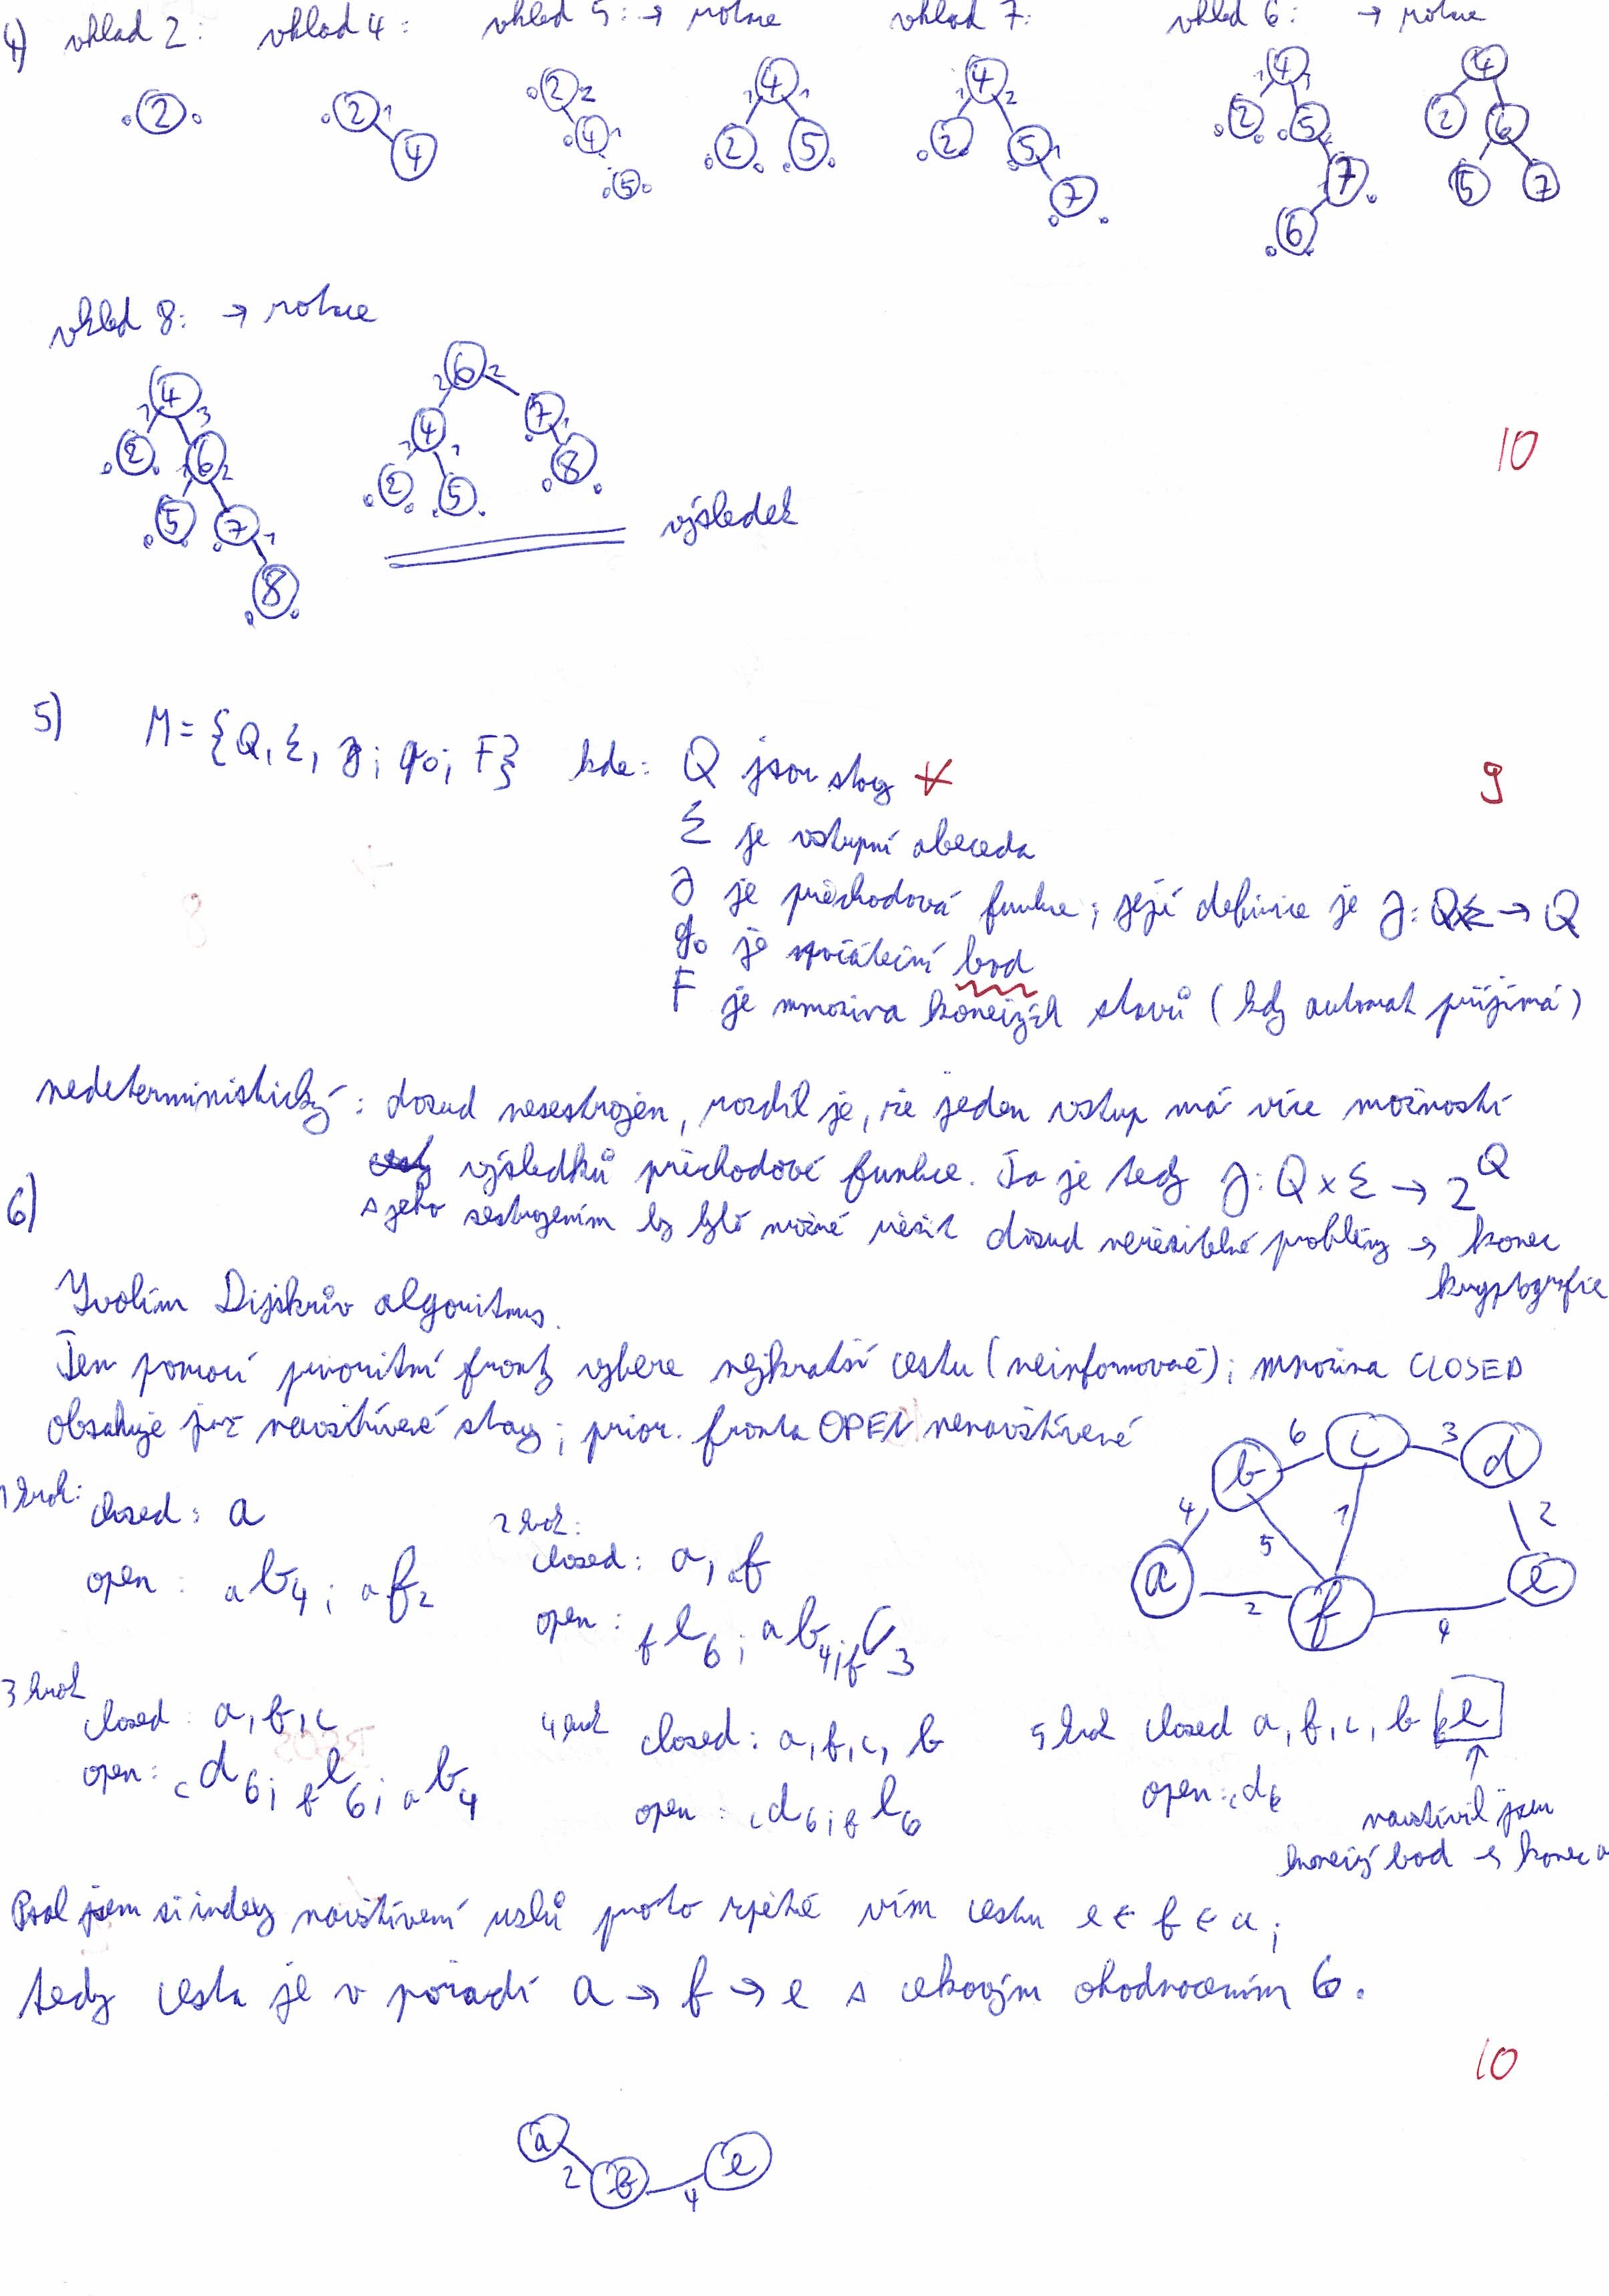 4) vklad 2: vklad 4: vklad 5: → rotace vklad 7: vklad 6: → rotace
2 2 1 4 2 2 4 1 5 1 4 1 2 5 1 4 2 2 5 1 7 1 4 1 2 5 7 6 4 2 6 5 7
vklad 8: → rotace
1 4 3 2 1 6 2 5 7 1 8
2 6 2 1 4 1 7 1 2 5 8
výsledek
10
5) M = {Q, Σ, δ; q0; F} kde: Q jsou stavy
9
Σ je vstupní abeceda
δ je přechodová funkce; její definice je δ: Q×Σ → Q
q0 je počáteční bod
F je množina konečných stavů (kdy automat přijímá)
nedeterministický: dosud nesestrojen, rozdíl je, že jeden vstup má více možností
výsledků přechodové funkce. Ta je tedy δ: Q × Σ → 2^Q
s jeho sestrojením by bylo možné řešit dosud neřešitelné problémy → konec
kryptografie
6)
Zvolím Dijskrův algoritmus.
Ten pomocí prioritní fronty vybere nejkratší cestu (neinformovaně); množina CLOSED
obsahuje již navštívené stavy; prior. fronta OPEN nenavštívené
b 6 c 3 d 4 5 1 2 a 2 f 4 e
1 krok: closed: a
open: a b 4; a f 2
2 krok:
closed: a, a f
open: f e 6; a b 4; f c 3
3 krok
closed: a, f, c
open: c d 6; f e 6; a b 4
4 krok closed: a, f, c, b
open: c d 6; f e 6
5 krok closed a, f, c, b f e
open: c d 6
navštívil jsem
konečný bod → konec
Psal jsem si indexy navštívení uzlů proto zpětně vím cestu e ← f ← a;
tedy cesta je v pořadí a → f → e s celkovým ohodnocením 6.
10
a 2 f 4 e